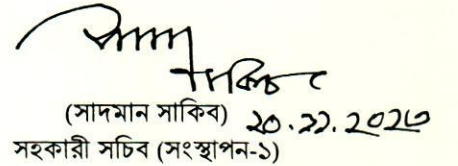 সাকিব
(সাদমান সাকিব) ২০.১১.২০২৩
সহকারী সচিব (সংস্থাপন-১)